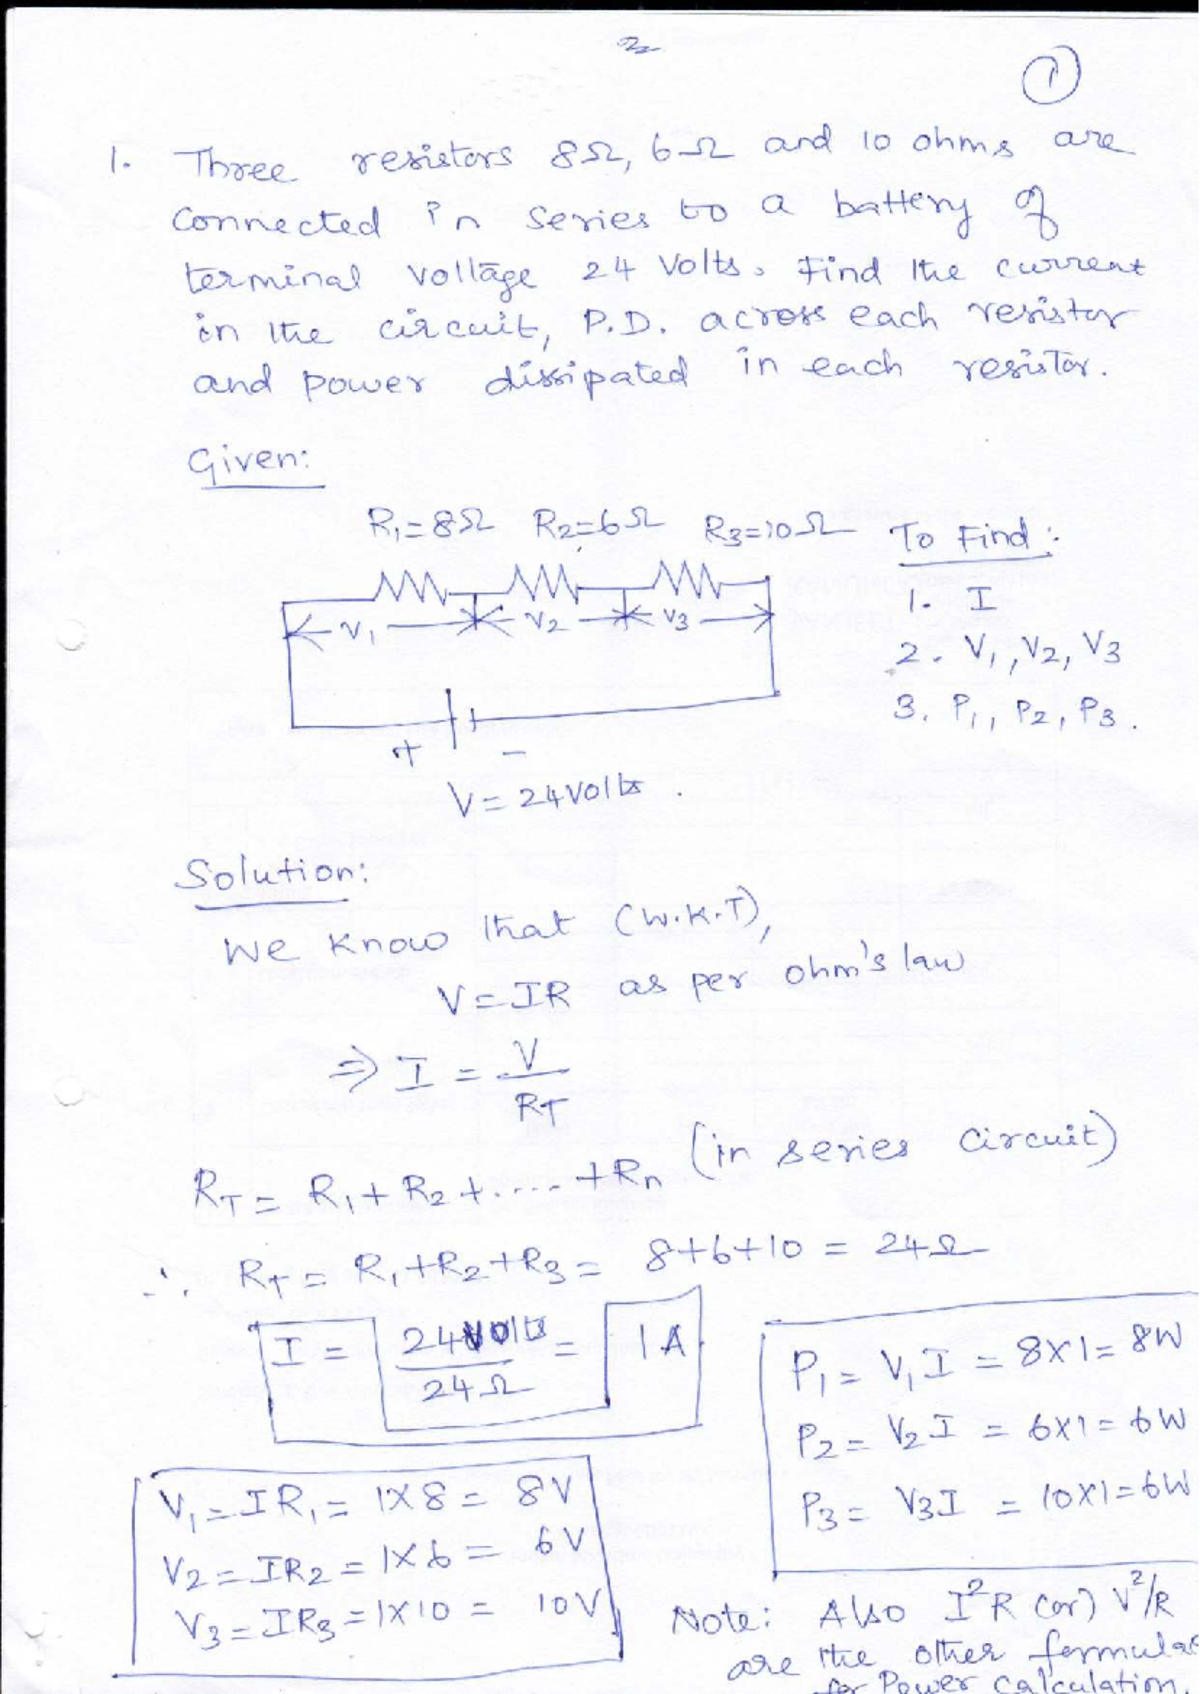 2
1
1. Three resistors 8Ω, 6Ω and 10 ohms are
connected in series to a battery of
terminal voltage 24 Volts. Find the current
in the circuit, P.D. across each resistor
and power dissipated in each resistor.
Given:
R1=8Ω R2=6Ω R3=10Ω
To Find:
1. I
2. V1, V2, V3
3. P1, P2, P3.
V1 V2 V3
+ -
V = 24 Volts.
Solution:
We know that (W.K.T),
V = IR as per ohm's law
⇒ I = V/RT
RT = R1 + R2 + .... + Rn (in series circuit)
∴ RT = R1+R2+R3 = 8+6+10 = 24Ω
I = 24 Volts/24Ω = 1A
P1 = V1 I = 8X1 = 8W
P2 = V2 I = 6X1 = 6W
P3 = V3 I = 10X1 = 6W
V1 = IR1 = 1X8 = 8V
V2 = IR2 = 1X6 = 6V
V3 = IR3 = 1X10 = 10V
Note: Also I²R (or) V²/R
are the other formulas
for Power calculation.